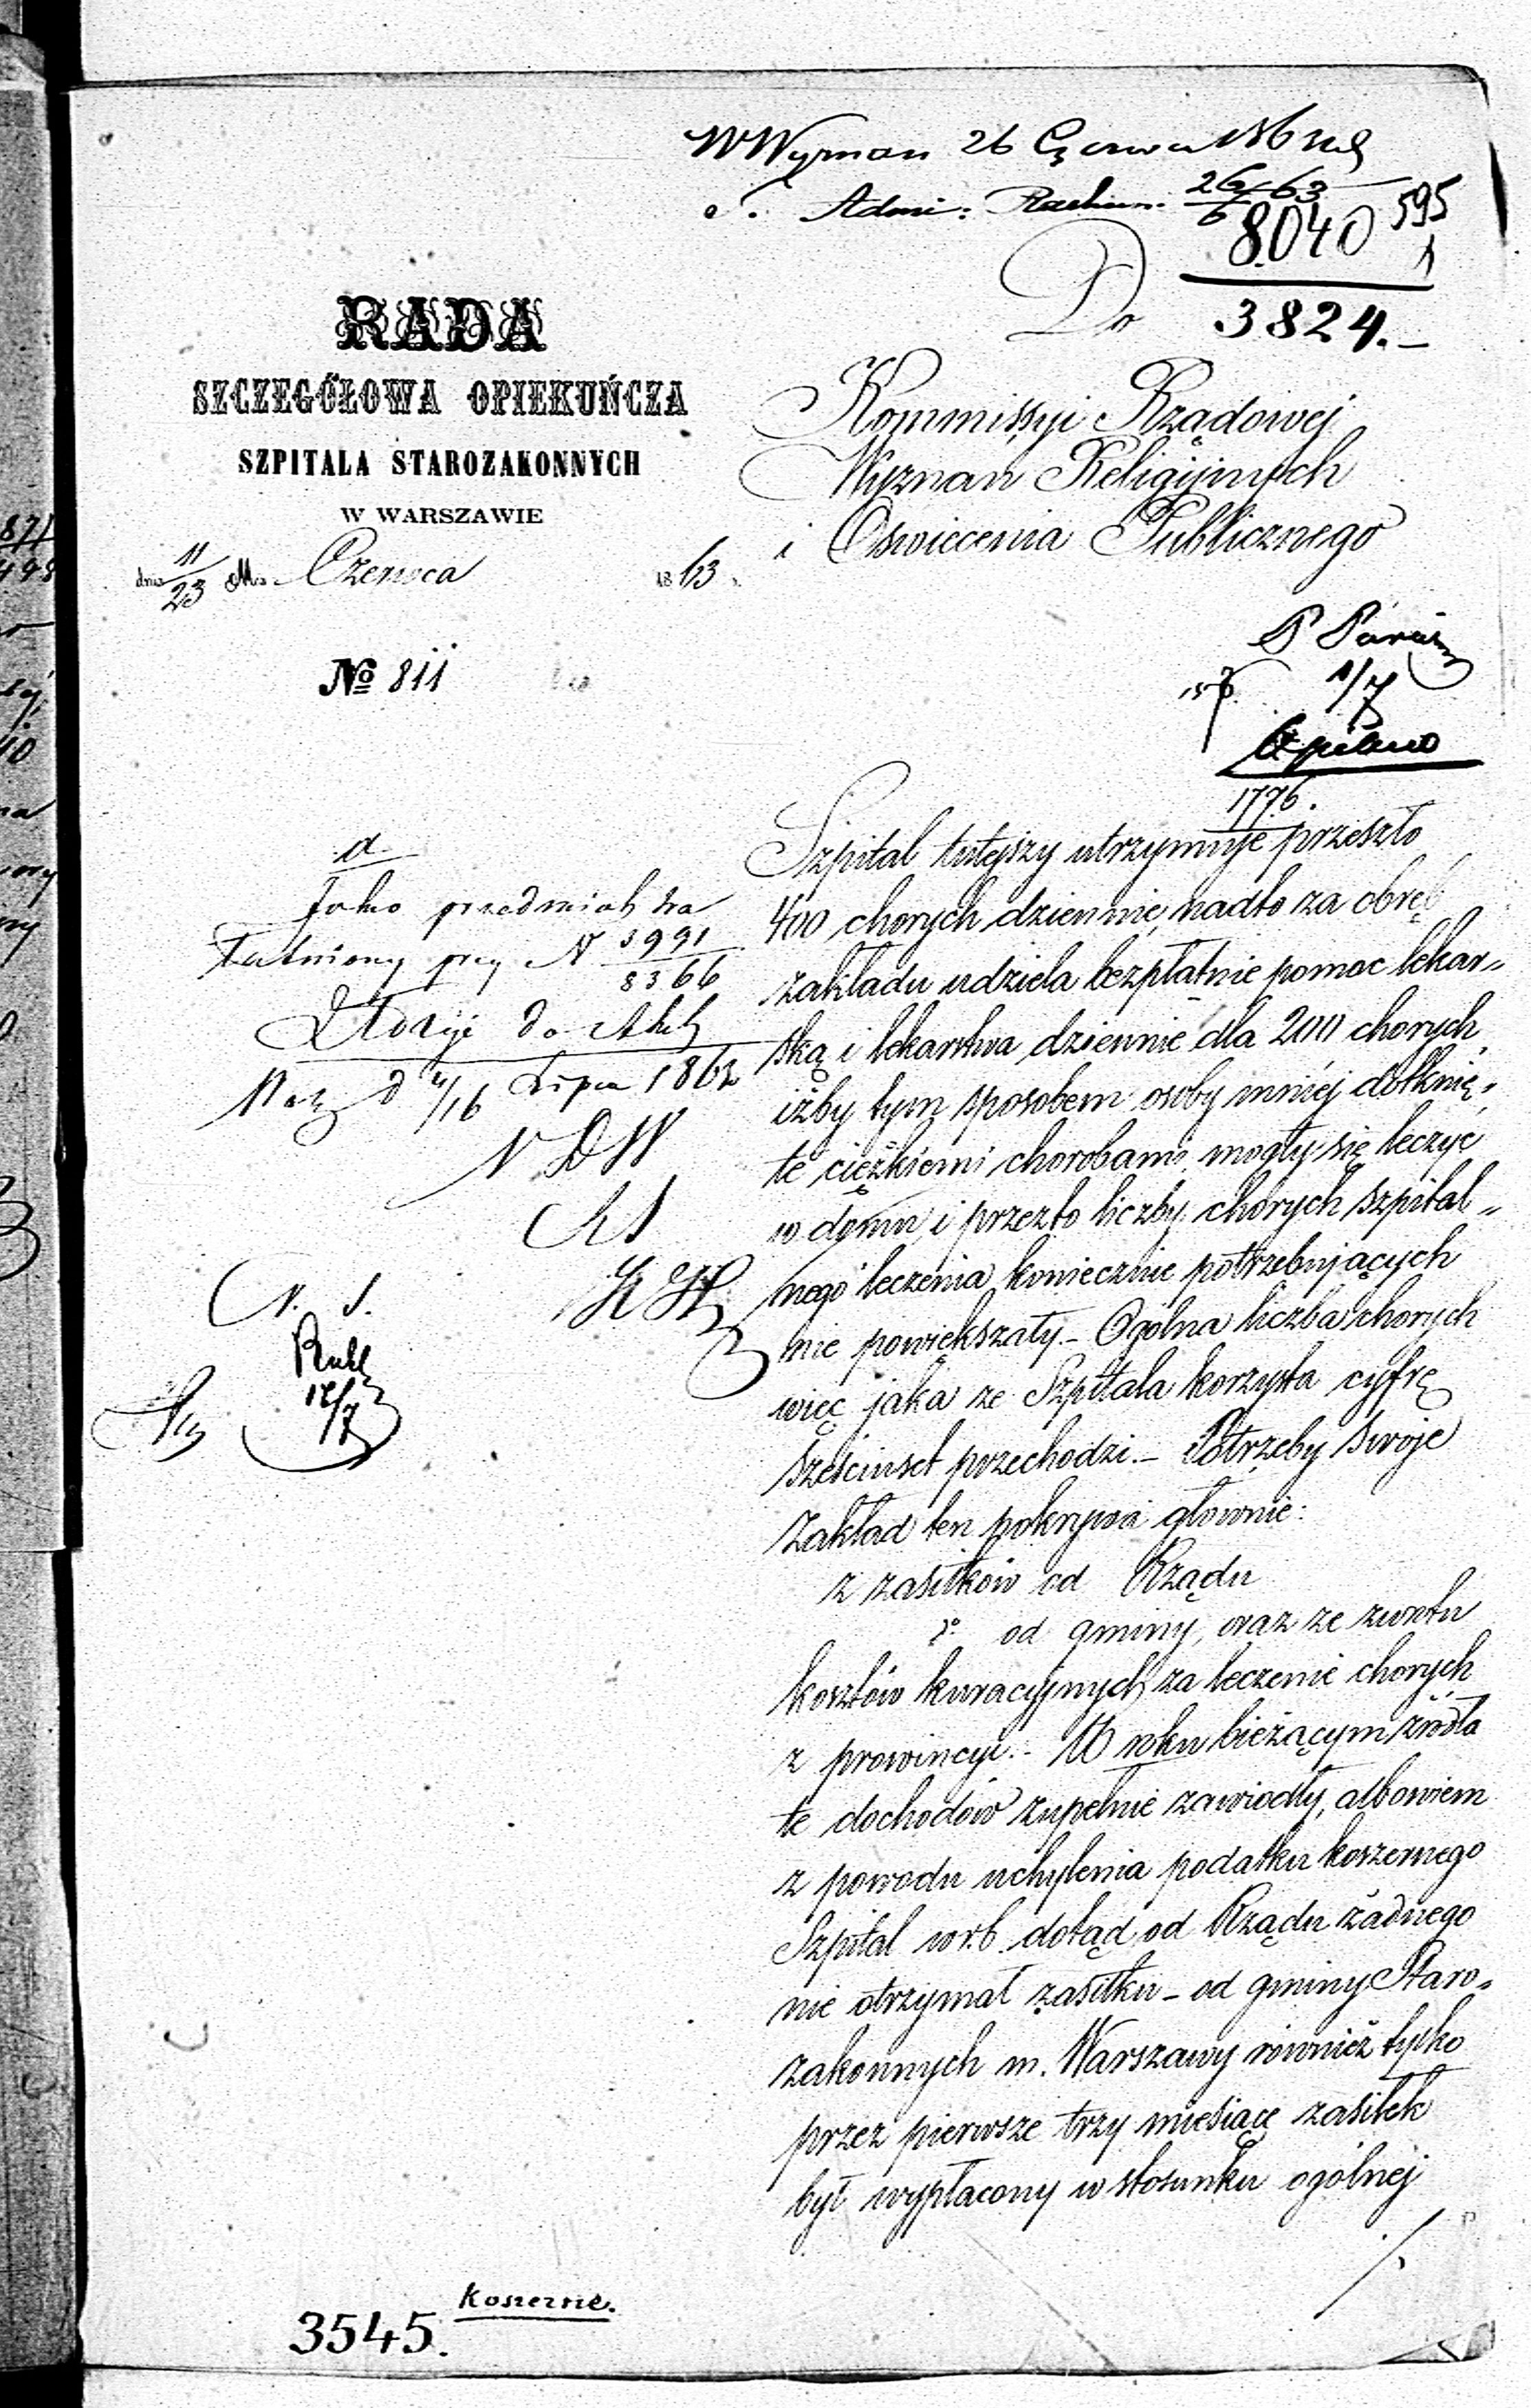 W Wyznań 26 Czerwca 186
Admi: Rachun. 26/6 63
595
1
8040
3824.—
Do
RADA
SZCZEGÓŁOWA OPIEKUŃCZA
SZPITALA STAROZAKONNYCH
W WARSZAWIE
dnia 11/23 M. Czerwca 1863.
Nº 811
Kommissyi Rządowej
Wyznań Religijnych
i Oświecenia Publicznego
P
1/7
1776.
a.
Jako przedmiot za
łatwiony przy N 3991
8366
Złożyć do Akt
Warz d 4/16 Lipca 1863
N D W
N. S.
Ruhl
12/7
Szpital tutejszy utrzymuje przeszło
400 chorych dziennie, nadto za obręb
zakładu udziela bezpłatnie pomoc lekar„
ską i lekarstwa dziennie dla 200 chorych
iżby tym sposobem osoby mniéj dotknię„
te ciężkiemi chorobami, mogły się leczyć
w domu, i przezto liczby chorych szpital„
nego leczenia koniecznie potrzebujących
nie powiększały.— Ogólna liczba chorych
więc jaka ze Szpitala korzysta cyfrę
sześciuset przechodzi.— Potrzeby swoje
Zakład ten pokrywa głownie:
z zasiłków od Rządu
do od gminy, oraz ze zwrotu
kosztów kuracyjnych za leczenie chorych
z prowincyi.— W roku bieżącym źródła
te dochodów zupełnie zawiodły, albowiem
z powodu uchylenia podatku koszernego
Szpital w r.b. dotąd od Rządu żadnego
nie otrzymał zasiłku — od gminy Staro„
zakonnych m. Warszawy również tylko
przez pierwsze trzy miesiące zasiłek
był wypłacony w stosunku ogólnej
./.
Koszerne.
3545.